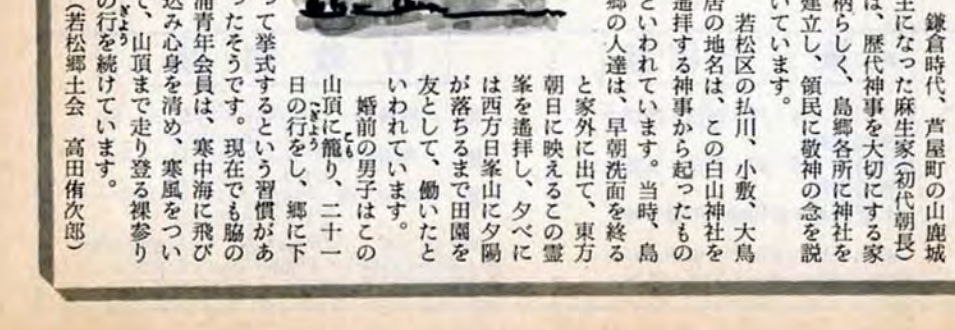 鎌倉時代、芦屋町の山鹿城
主になった麻生家(初代朝長)
は、歴代神事を大切にする家
柄らしく、島郷各所に神社を
建立し、領民に敬神の念を説
いています。
若松区の払川、小敷、大鳥
居の地名は、この白山神社を
遥拝する神事から起ったもの
といわれています。当時、島
郷の人達は、早朝洗面を終る
と家外に出て、東方
朝日に映えるこの霊
峯を遙拝し、夕べに
は西方日峯山に夕陽
が落ちるまで田園を
友として、働いたと
いわれています。
婚前の男子はこの
山頂に籠り、二十一
日の行をし、郷に下
って挙式するという習慣があ
ったそうです。現在でも脇の
浦青年会員は、寒中海に飛び
込み心身を清め、寒風をつい
て、山頂まで走り登る裸参り
の行を続けています。
(若松郷土会 高田侑次郎)